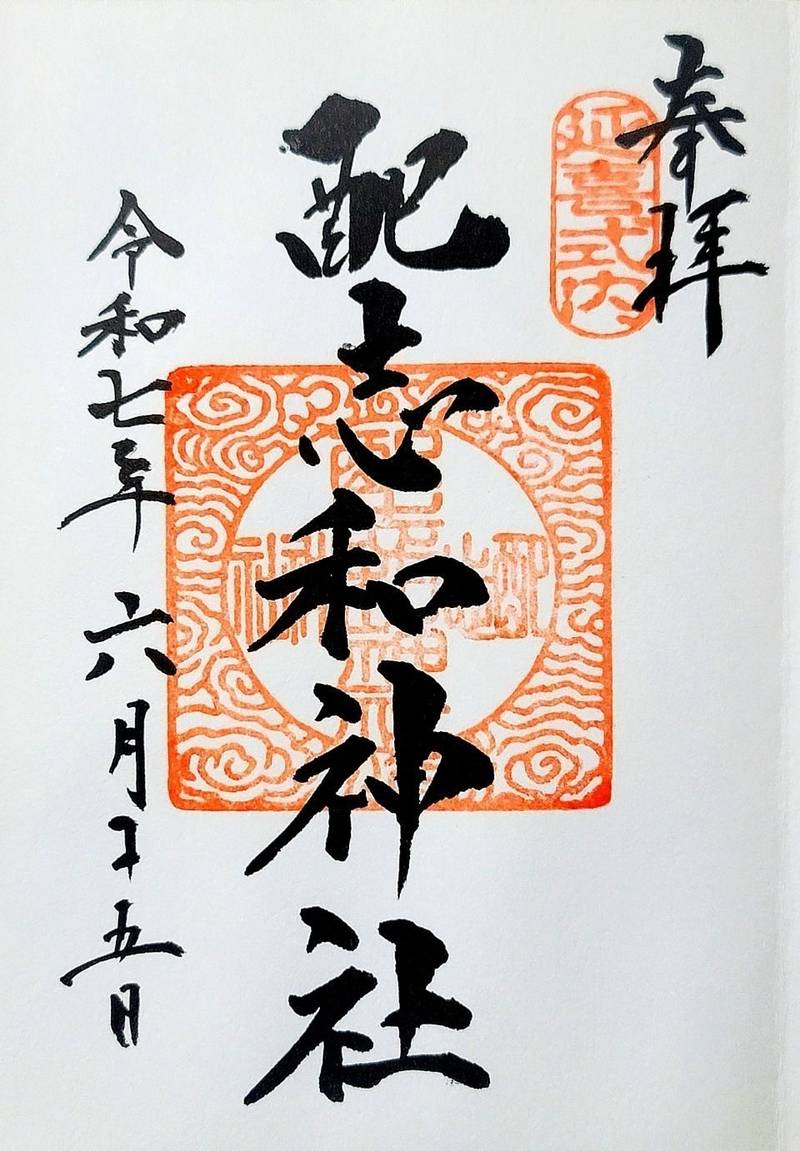 奉拝
延喜式内
配志和神社
令和七年六月二十五日